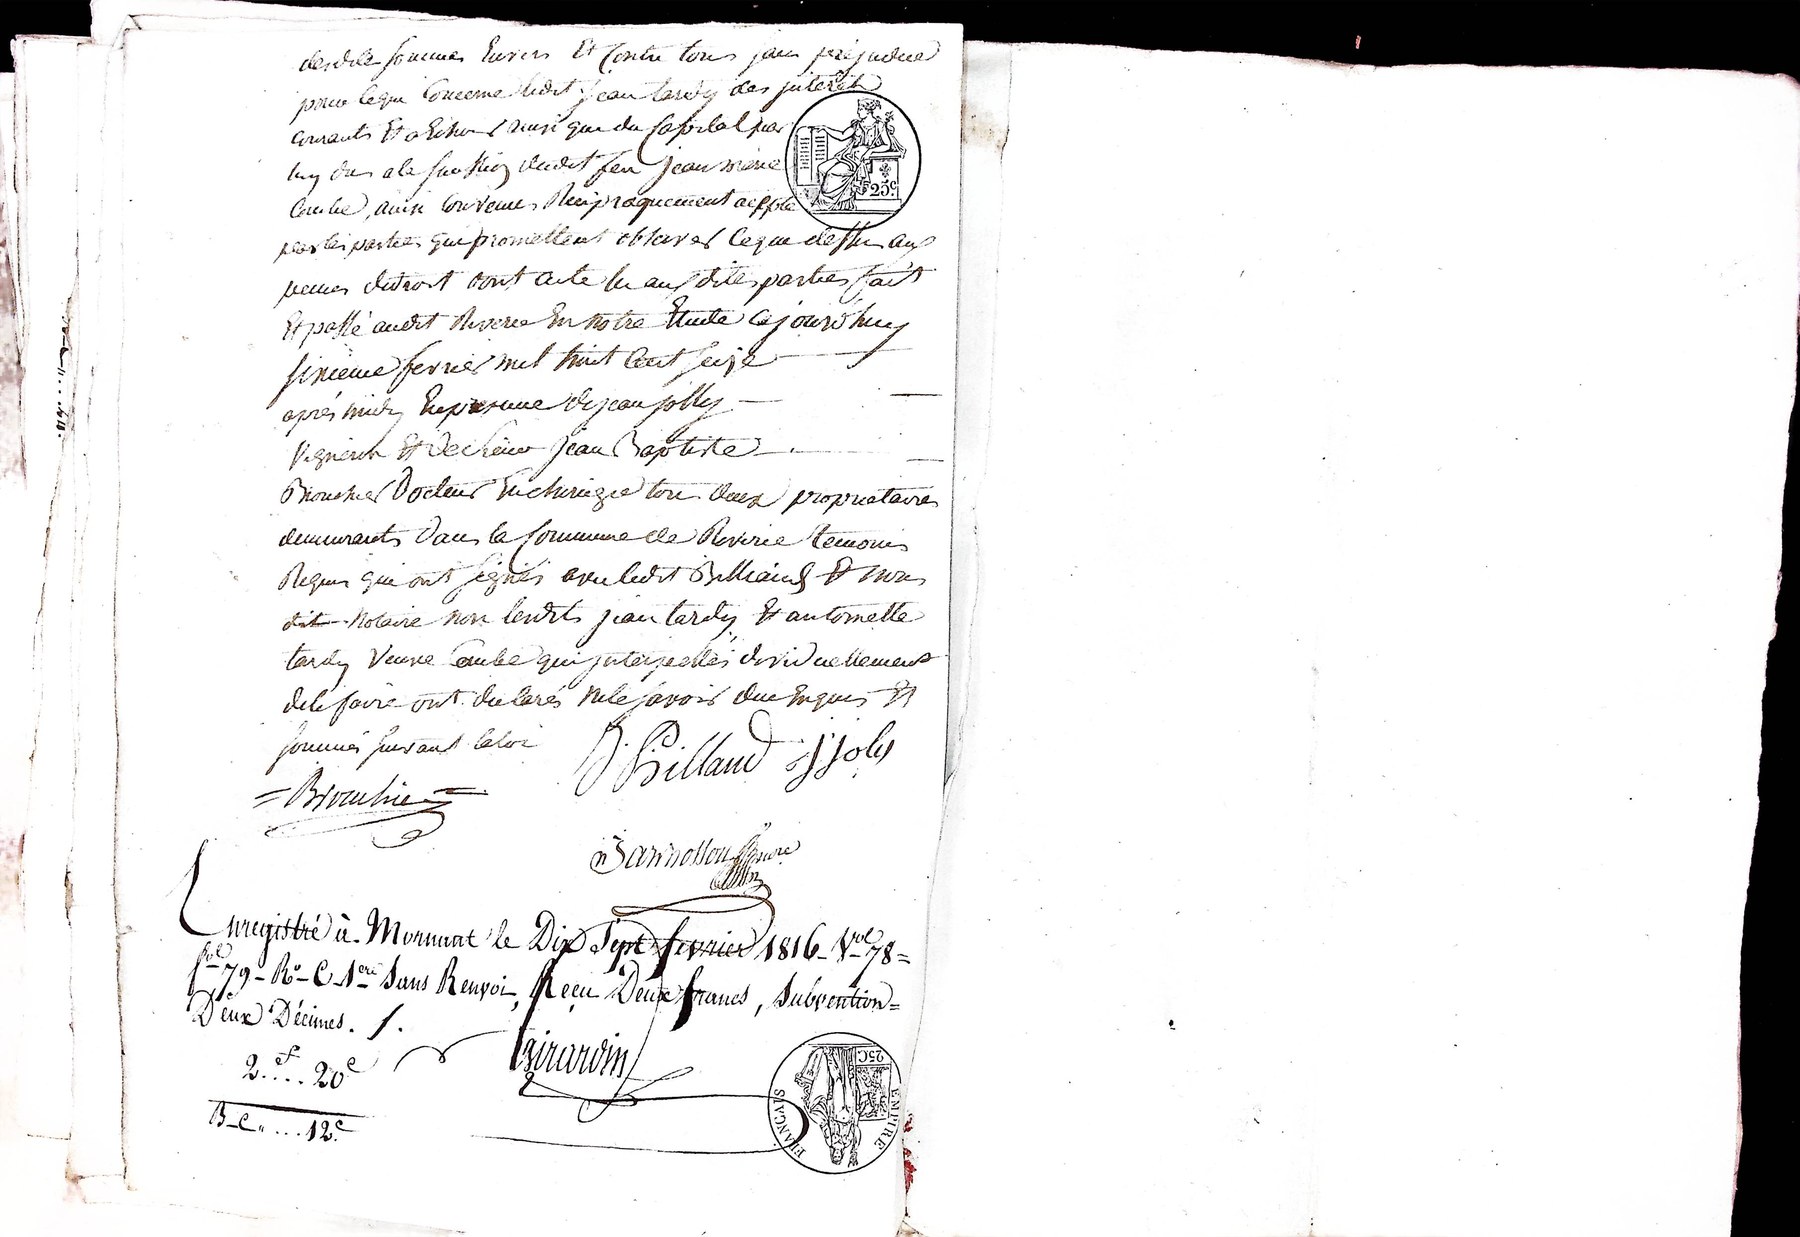 desdites sommes Envers Et Contre tous sans prejudice
pour ce qui Concerne ledit jean tardy des jnterêts
courants Et a Echoir ainsi que du Capital par
luy du a la succession dudit feu jean
Combe, ainsi Convenu Reciproquement accepté
par les parties qui promettent observer Ce que dessus aux
peines de droit dont acte lu aux dites parties fait
Et passé audit Riverie En notre Etude Cejourd'huy
sixieme fevrier mil huit Cent seize
après midy En presence de jean jolly
Vigneron Et de sieur jean Baptiste
Brouchier Docteur En chirurgie tous deux propriétaires
demeurants dans la Commune de Riverie temoins
Requis qui ont signés avec ledit Billiaud Et nous
dit notaire non lesdits jean tardy Et antoinette
tardy Veuve Combe qui jnterpellés dividuellement
de le faire ont declarés ne le savoir due Enquis Et
sommés suivant la loi
Billaud j joly
Brouchier
25 c.
Enregistré à Mornant le Dix Sept fevrier 1816 - Vol 78 =
fol 79 - Ro - C 1ere Sans Renvoi, Reçu Deux francs, subvention =
Deux Décimes. /.
Girardin
2 f .... 20 c
B - C .... 12 c
EMPIRE FRANÇAIS
25C